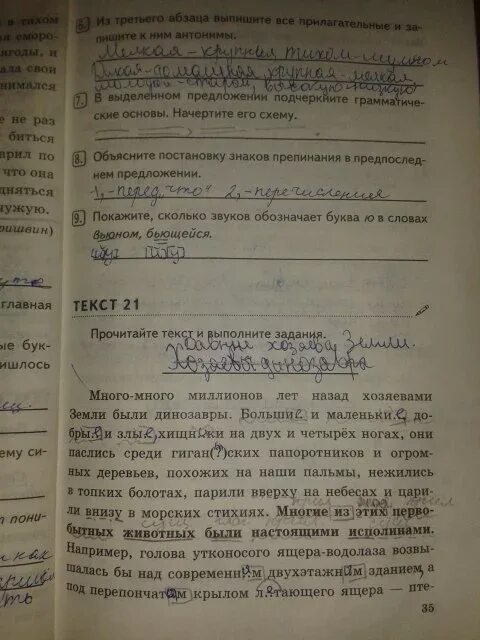 в тихом
сморо-
ягоды, и
ала свои
нимался
не раз
биться
арил по
что она
дняться
чужую.
ришвин)
главная
ые бук-
ишлось
ему си-
т пони-
6. Из третьего абзаца выпишите все прилагательные и за-
пишите к ним антонимы.
Мелкая – крупная тихом – шумном
дикая – домашная крупная – мелкая
молодую – старой, высокую – низкую
7. В выделенном предложении подчеркните грамматиче-
ские основы. Начертите его схему.
8. Объясните постановку знаков препинания в предпослед-
нем предложении.
1, – перед „что" 2, – перечисления
9. Покажите, сколько звуков обозначает буква ю в словах
вьюном, бьющейся.
[й'у]
ТЕКСТ 21
Прочитайте текст и выполните задания.
хозяева Земли.
Хозяева динозавра
Много-много миллионов лет назад хозяевами
Земли были динозавры. Большие и маленькие, до-
брые и злые, хищники на двух и четырёх ногах, они
паслись среди гиган(?)ских папоротников и огром-
ных деревьев, похожих на наши пальмы, нежились
в топких болотах, парили вверху на небесах и цари-
ли внизу в морских стихиях. Многие из этих перво-
бытных животных были настоящими исполинами.
Например, голова утконосого ящера-водолаза возвы-
шалась бы над современным двухэтажным зданием, а
под перепончатым крылом летающего ящера — пте-
35